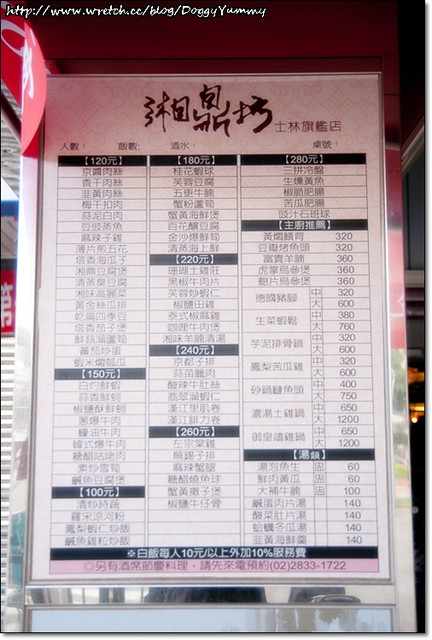 http://www.wretch.cc/blog/DoggyYummy
湘鼎坊 士林旗艦店
人數： 飯數: 酒水： 桌號：
【120元】
京醬肉絲
香干肉絲
韭黃肉絲
梅干扣肉
蒜泥白肉
豆豉蒸魚
麻辣子雞
薄片煎五花
塔香海瓜子
湘鼎豆腐煲
清蒸臭豆腐
湘味高麗菜
黃金絲瓜排
乾扁四季豆
塔香茄子煲
鮮菇溜蘆筍
蕃茄炒蛋
蝦米燜胡瓜
【150元】
白灼鮮蝦
蒜香鮮蚵
椒鹽酥鮮蚵
蔥爆牛肉
蠔油牛肉
韓式爆牛肉
糖醋咕咾肉
素炒雪筍
鹹魚豆腐煲
【100元】
清炒時蔬
羅宋涼河粉
鳳梨蝦仁炒飯
鹹魚雞粒炒飯
【180元】
桂花蝦球
芙蓉豆腐
五更牛腩
蟹粉蘆筍
蟹黃海鮮煲
百花釀豆腐
金沙爆鮮筍
清蒸海上鮮
【220元】
珊瑚土雞莊
黑椒牛肉片
芙蓉炒蝦仁
椒鹽田雞
泰式椒麻雞
咖哩牛肉煲
湘味羊腩清湯
【240元】
京都子排
蒜苗臘肉
酸辣牛肚絲
翡翠溜蝦仁
漢江里肌卷
漢江腓力卷
【260元】
左宗棠雞
無錫子排
麻辣蟹腿
糖醋燒魚球
蟹黃獅子煲
椒鹽牛仔骨
【280元】
三拼冷盤
生燻黃魚
椒脆肥腸
苦瓜肥腸
豉汁石斑球
【主廚推薦】
黃燜鱔背 320
豆瓣烤魚頭 320
富貴羊腩 360
虎掌烏參煲 360
鮑片烏參煲 360
德國豬腳 中 320
大 600
生菜蝦鬆 中 380
大 760
芋泥排骨鍋 中 320
大 600
鳳梨苦瓜雞 中 320
大 600
砂鍋鰱魚頭 中 400
大 700
濃湯土雞鍋 中 650
大 1200
御皇鴿雞鍋 中 650
大 1200
【湯類】
湯泡魚生 盅 60
鮮肉黃瓜 盅 60
大補牛腩 盅 100
鹹蛋肉片湯 140
酸菜肚片湯 140
蛤蠣冬瓜湯 140
韭黃海鮮羹 140
※白飯每人10元/以上外加10%服務費
◎另有酒席節慶料理，請先來電預約(02)2833-1722